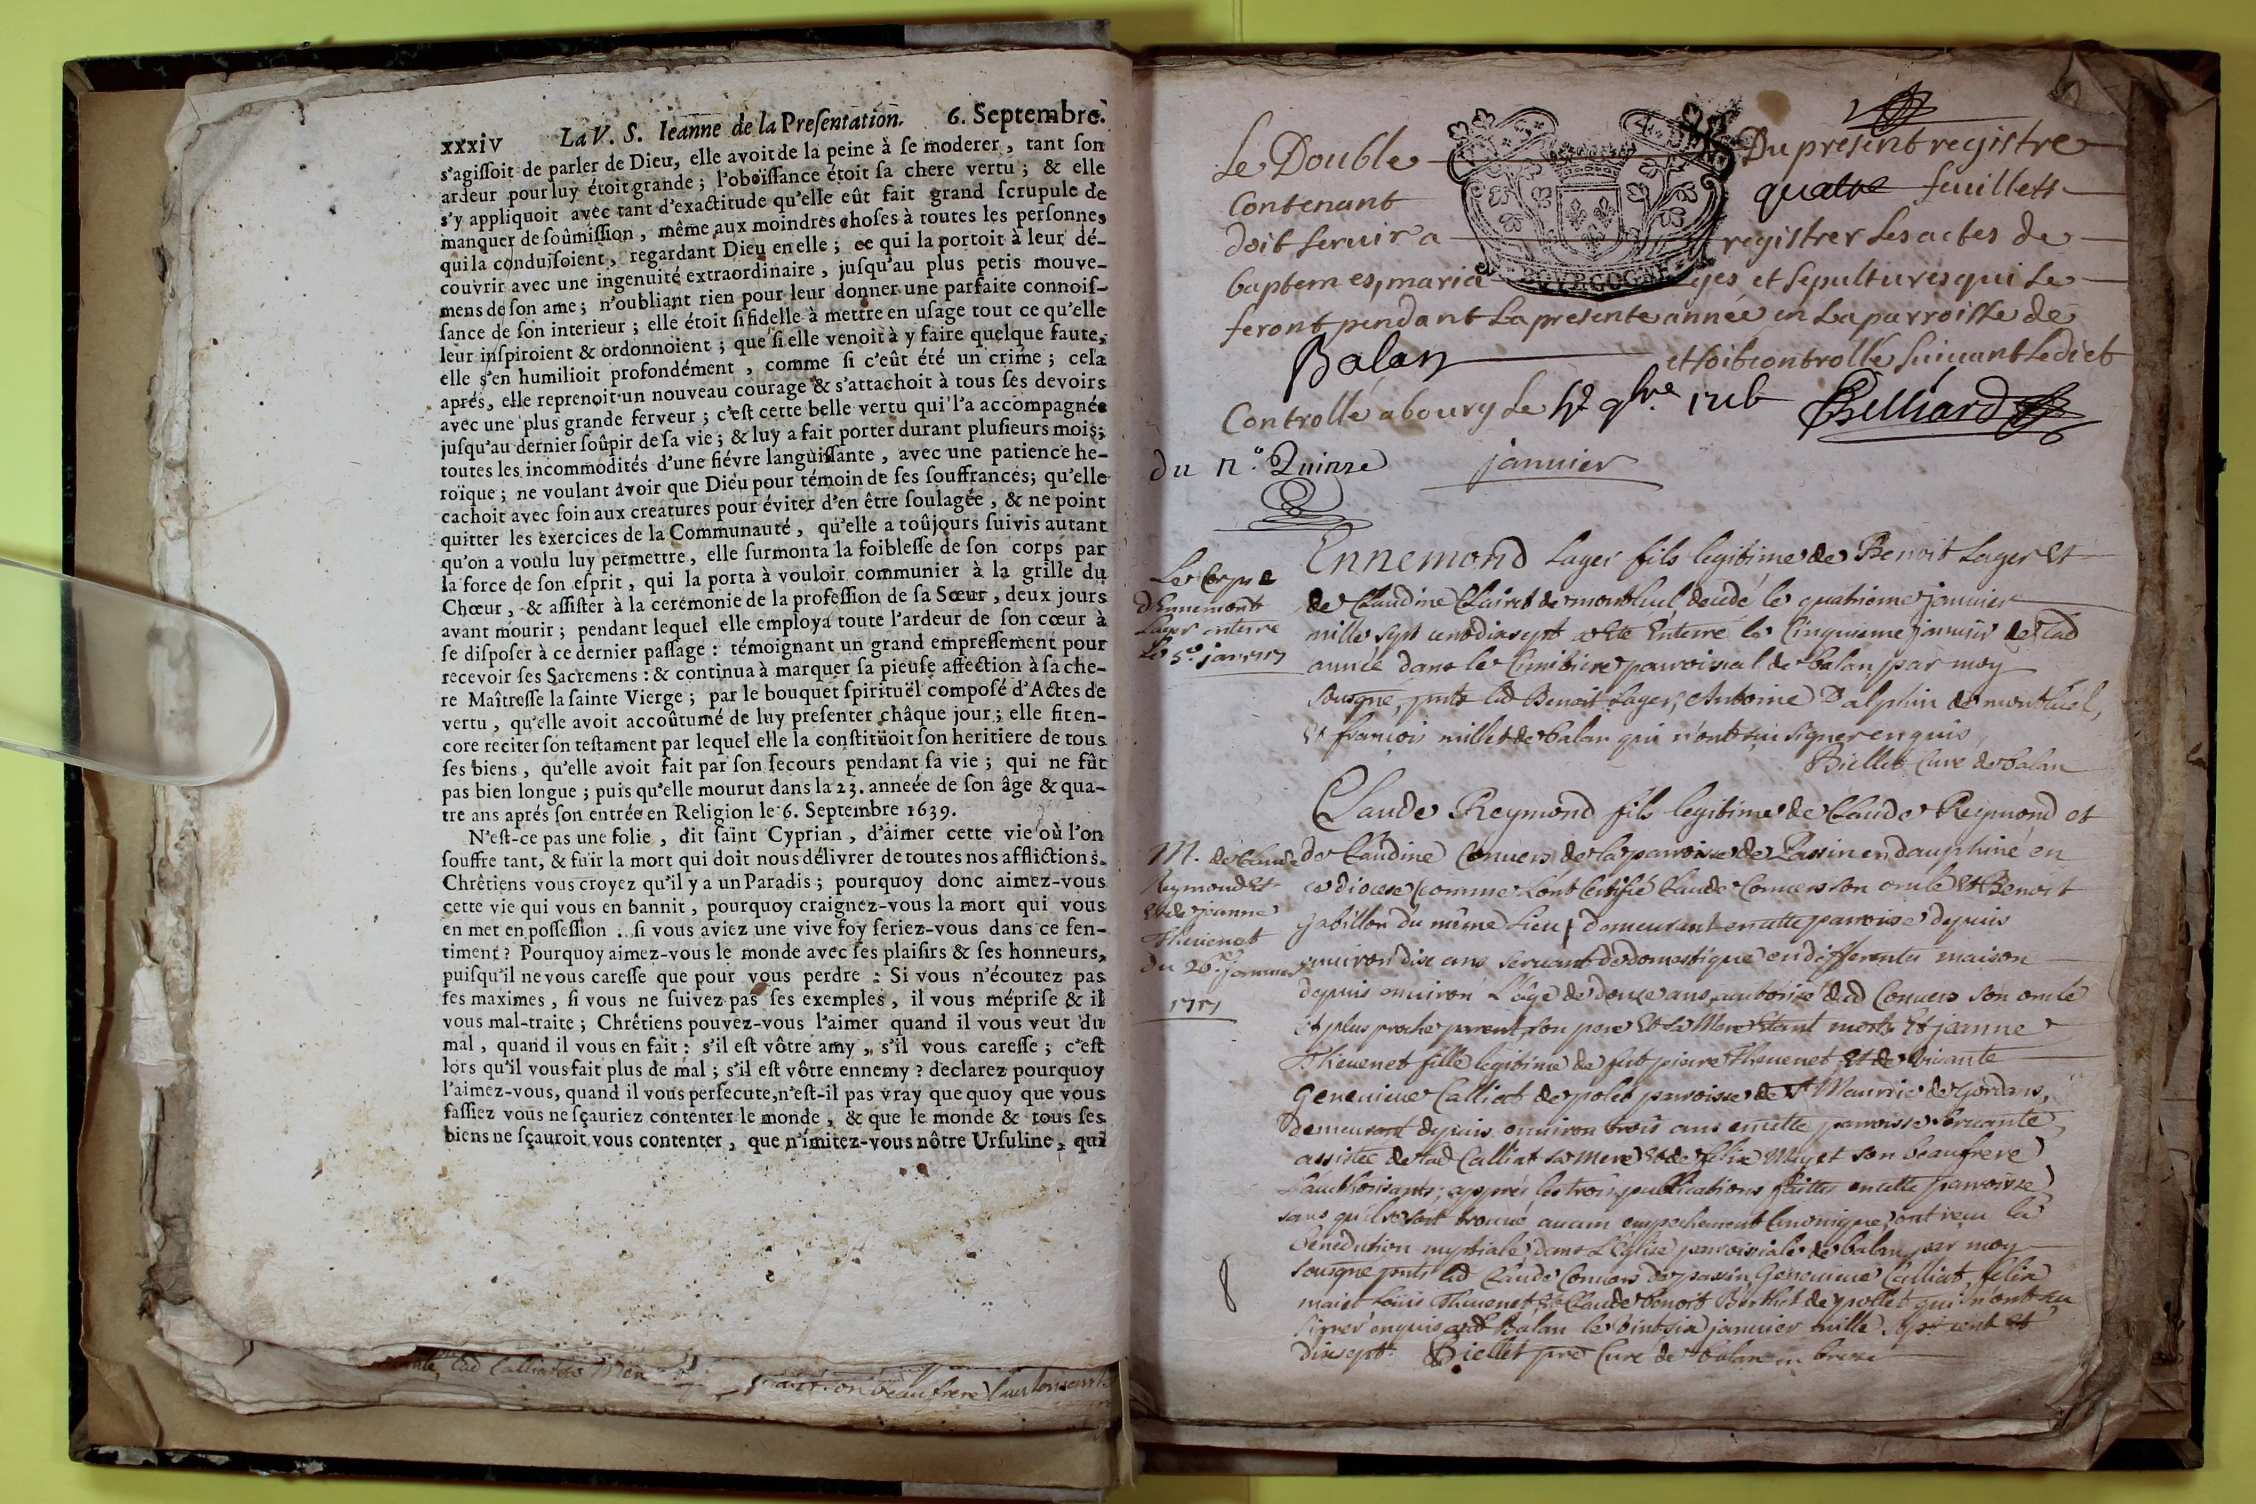 xxxiv La V. S. Ieanne de la Preſentation. 6. Septembre.
s'agiſſoit de parler de Dieu, elle avoit de la peine à ſe moderer, tant ſon
ardeur pour luy étoit grande; l'oboïſſance étoit ſa chere vertu; & elle
s'y appliquoit avec tant d'exactitude qu'elle eût fait grand ſcrupule de
manquer de ſoûmiſſion, même aux moindres choſes à toutes les perſonnes
qui la conduiſoient, regardant Dieu en elle; ce qui la portoit à leur dé-
couvrir avec une ingenuité extraordinaire, juſqu'au plus petis mouve-
mens de ſon ame; n'oubliant rien pour leur donner une parfaite connoiſ-
ſance de ſon interieur; elle étoit ſi fidelle à mettre en uſage tout ce qu'elle
leur inſpiroient & ordonnoient; que ſi elle venoit à y faire quelque faute,
elle s'en humilioit profondément, comme ſi c'eût été un crime; cela
aprés, elle reprenoit un nouveau courage & s'attachoit à tous ſes devoirs
avec une plus grande ferveur; c'eſt cette belle vertu qui l'a accompagnée
juſqu'au dernier ſoûpir de ſa vie; & luy a fait porter durant pluſieurs mois;
toutes les incommodités d'une fiévre languiſſante, avec une patience he-
roïque; ne voulant avoir que Dieu pour témoin de ſes ſouffrances; qu'elle
cachoit avec ſoin aux creatures pour éviter d'en être ſoulagée, & ne point
quitter les exercices de la Communauté, qu'elle a toûjours ſuivis autant
qu'on a voulu luy permettre, elle ſurmonta la foibleſſe de ſon corps par
la force de ſon eſprit, qui la porta à vouloir communier à la grille du
Chœur, & aſſiſter à la ceremonie de la profeſſion de ſa Sœur, deux jours
avant mourir; pendant lequel elle employa toute l'ardeur de ſon cœur à
ſe diſpoſer à ce dernier paſſage: témoignant un grand empreſſement pour
recevoir ſes Sacremens: & continua à marquer ſa pieuſe affection à ſa che-
re Maîtreſſe la ſainte Vierge; par le bouquet ſpirituël compoſé d'Actes de
vertu, qu'elle avoit accoûtumé de luy preſenter châque jour; elle fit en-
core reciter ſon teſtament par lequel elle la conſtitüoit ſon heritiere de tous
ſes biens, qu'elle avoit fait par ſon ſecours pendant ſa vie; qui ne fût
pas bien longue; puis qu'elle mourut dans la 23. anneée de ſon âge & qua-
tre ans aprés ſon entrée en Religion le 6. Septembre 1639.
N'eſt-ce pas une folie, dit ſaint Cyprian, d'aimer cette vie où l'on
ſouffre tant, & fuïr la mort qui doit nous délivrer de toutes nos afflictions.
Chrêtiens vous croyez qu'il y a un Paradis; pourquoy donc aimez-vous
cette vie qui vous en bannit, pourquoy craignez-vous la mort qui vous
en met en poſſeſſion. ſi vous aviez une vive foy ſeriez-vous dans ce ſen-
timent? Pourquoy aimez-vous le monde avec ſes plaiſirs & ſes honneurs,
puiſqu'il ne vous careſſe que pour vous perdre: Si vous n'écoutez pas
ſes maximes, ſi vous ne ſuivez pas ſes exemples, il vous mépriſe & il
vous mal-traite; Chrêtiens pouvez-vous l'aimer quand il vous veut du
mal, quand il vous en fait: s'il eſt vôtre amy, s'il vous careſſe; c'eſt
lors qu'il vous fait plus de mal; s'il eſt vôtre ennemy? declarez pourquoy
l'aimez-vous, quand il vous perſecute, n'eſt-il pas vray que quoy que vous
faſſiez vous ne ſçauriez contenter le monde, & que le monde & tous ſes
biens ne ſçauroit vous contenter, que n'imitez-vous nôtre Urſuline, qui
lad Calliat sa Mere
son beaufrere
Le Double Du present registre
Contenant quatre feuillets
doit seruir a registrer les actes de
baptemes, maria ges et sepultures qui se
BOVRGOGNE
feront pendant la presente année en la parroisse de
Balan et soit controllé suiuant ledict
Controllé a bourg le 9bre Belliard
du n.o Quinze
januier
Le Corps
d'Ennemont
Lager enterre
le 5e jan. 1717
Ennemond Lager fils legitime de Benoit Lager et
de Claudine Clairet de montluel decedé le quatrieme januier
mille sept cent dix sept a ete enterré le cinquieme januier de lad
année dans le cimitiere parroissial de balan par moy
sousigné, pnts led Benoit Lager, Antoine Dalphin de montluel,
et françois millet de balan qui n'ont sui signer enquis
Biellet Curé de balan
M. de Claude
Reymond et
et de jeanne
Theuenet
du 26e januier
1717
Claude Reymond fils legitime de Claude Reymond et
de Claudine Conuers de la parroisse de Passin en dauphiné en
ce diocese (comme l'ont certifié Claude Conuers son oncle et Benoit
gabillon du même lieu) demeurant en cette parroisse depuis
enuiron dix ans seruant de domestique en differentes maison
depuis enuiron l'âge de douze ans, authorisé dud Conuers son oncle
et plus proche parent son pere et sa mere etant morts et jeanne
Theuenet fille legitime de fut pierre Theuenet et de viuante
Geneuieue Calliat de polet parroisse de St Maurice de Gordans,
demeurant depuis enuiron trois ans en cette parroisse seruante,
assistée de lad Calliat sa mere et de felix Mayet son beaufrere
l'authorisants; apprés les trois publications faittes en cette parroisse
sans qu'il se soit trouué aucun empechement canonique, ont receu la
benediction nuptiale dans l'Eglise parroissiale de balan par moy
sousigné pnts led Claude Conuers de passin, Geneuieue Calliat, felix
maiet Louis Theuenet, et Claude benoit Berthet de pollet qui n'ont su
signer enquis aud Balan le vintsix januier mille sept cent et
dixsept. Biellet pre Curé de balan en bresse